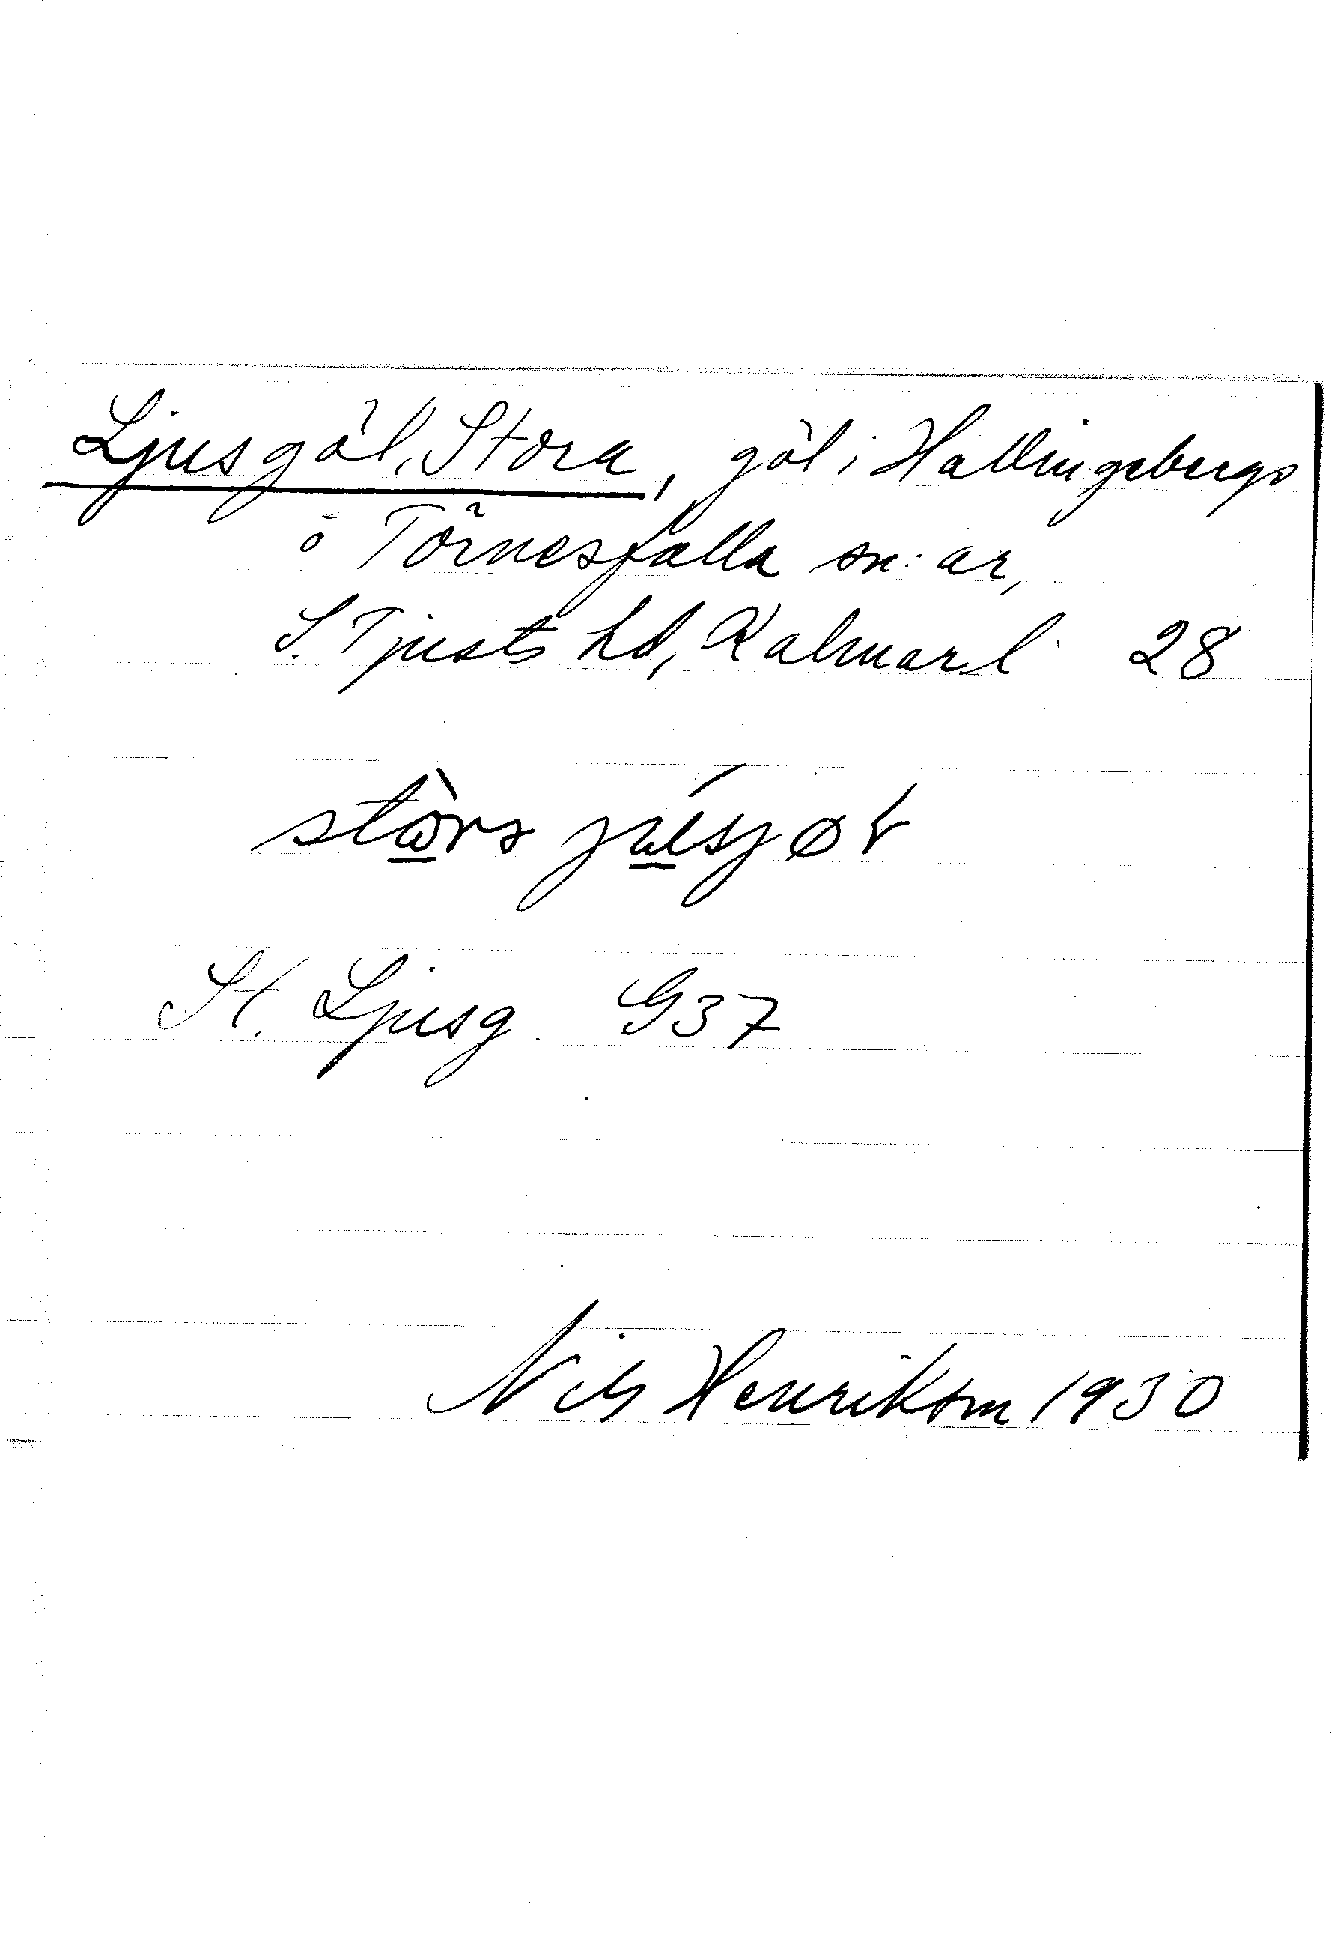 Ljusgöl, Stora, göl i Hallingebergs
o Törnesfalla sn:ar,
S. Tjusts hd, Kalmar l 28
St. Ljusg. G37
Nils Henrikson 1930